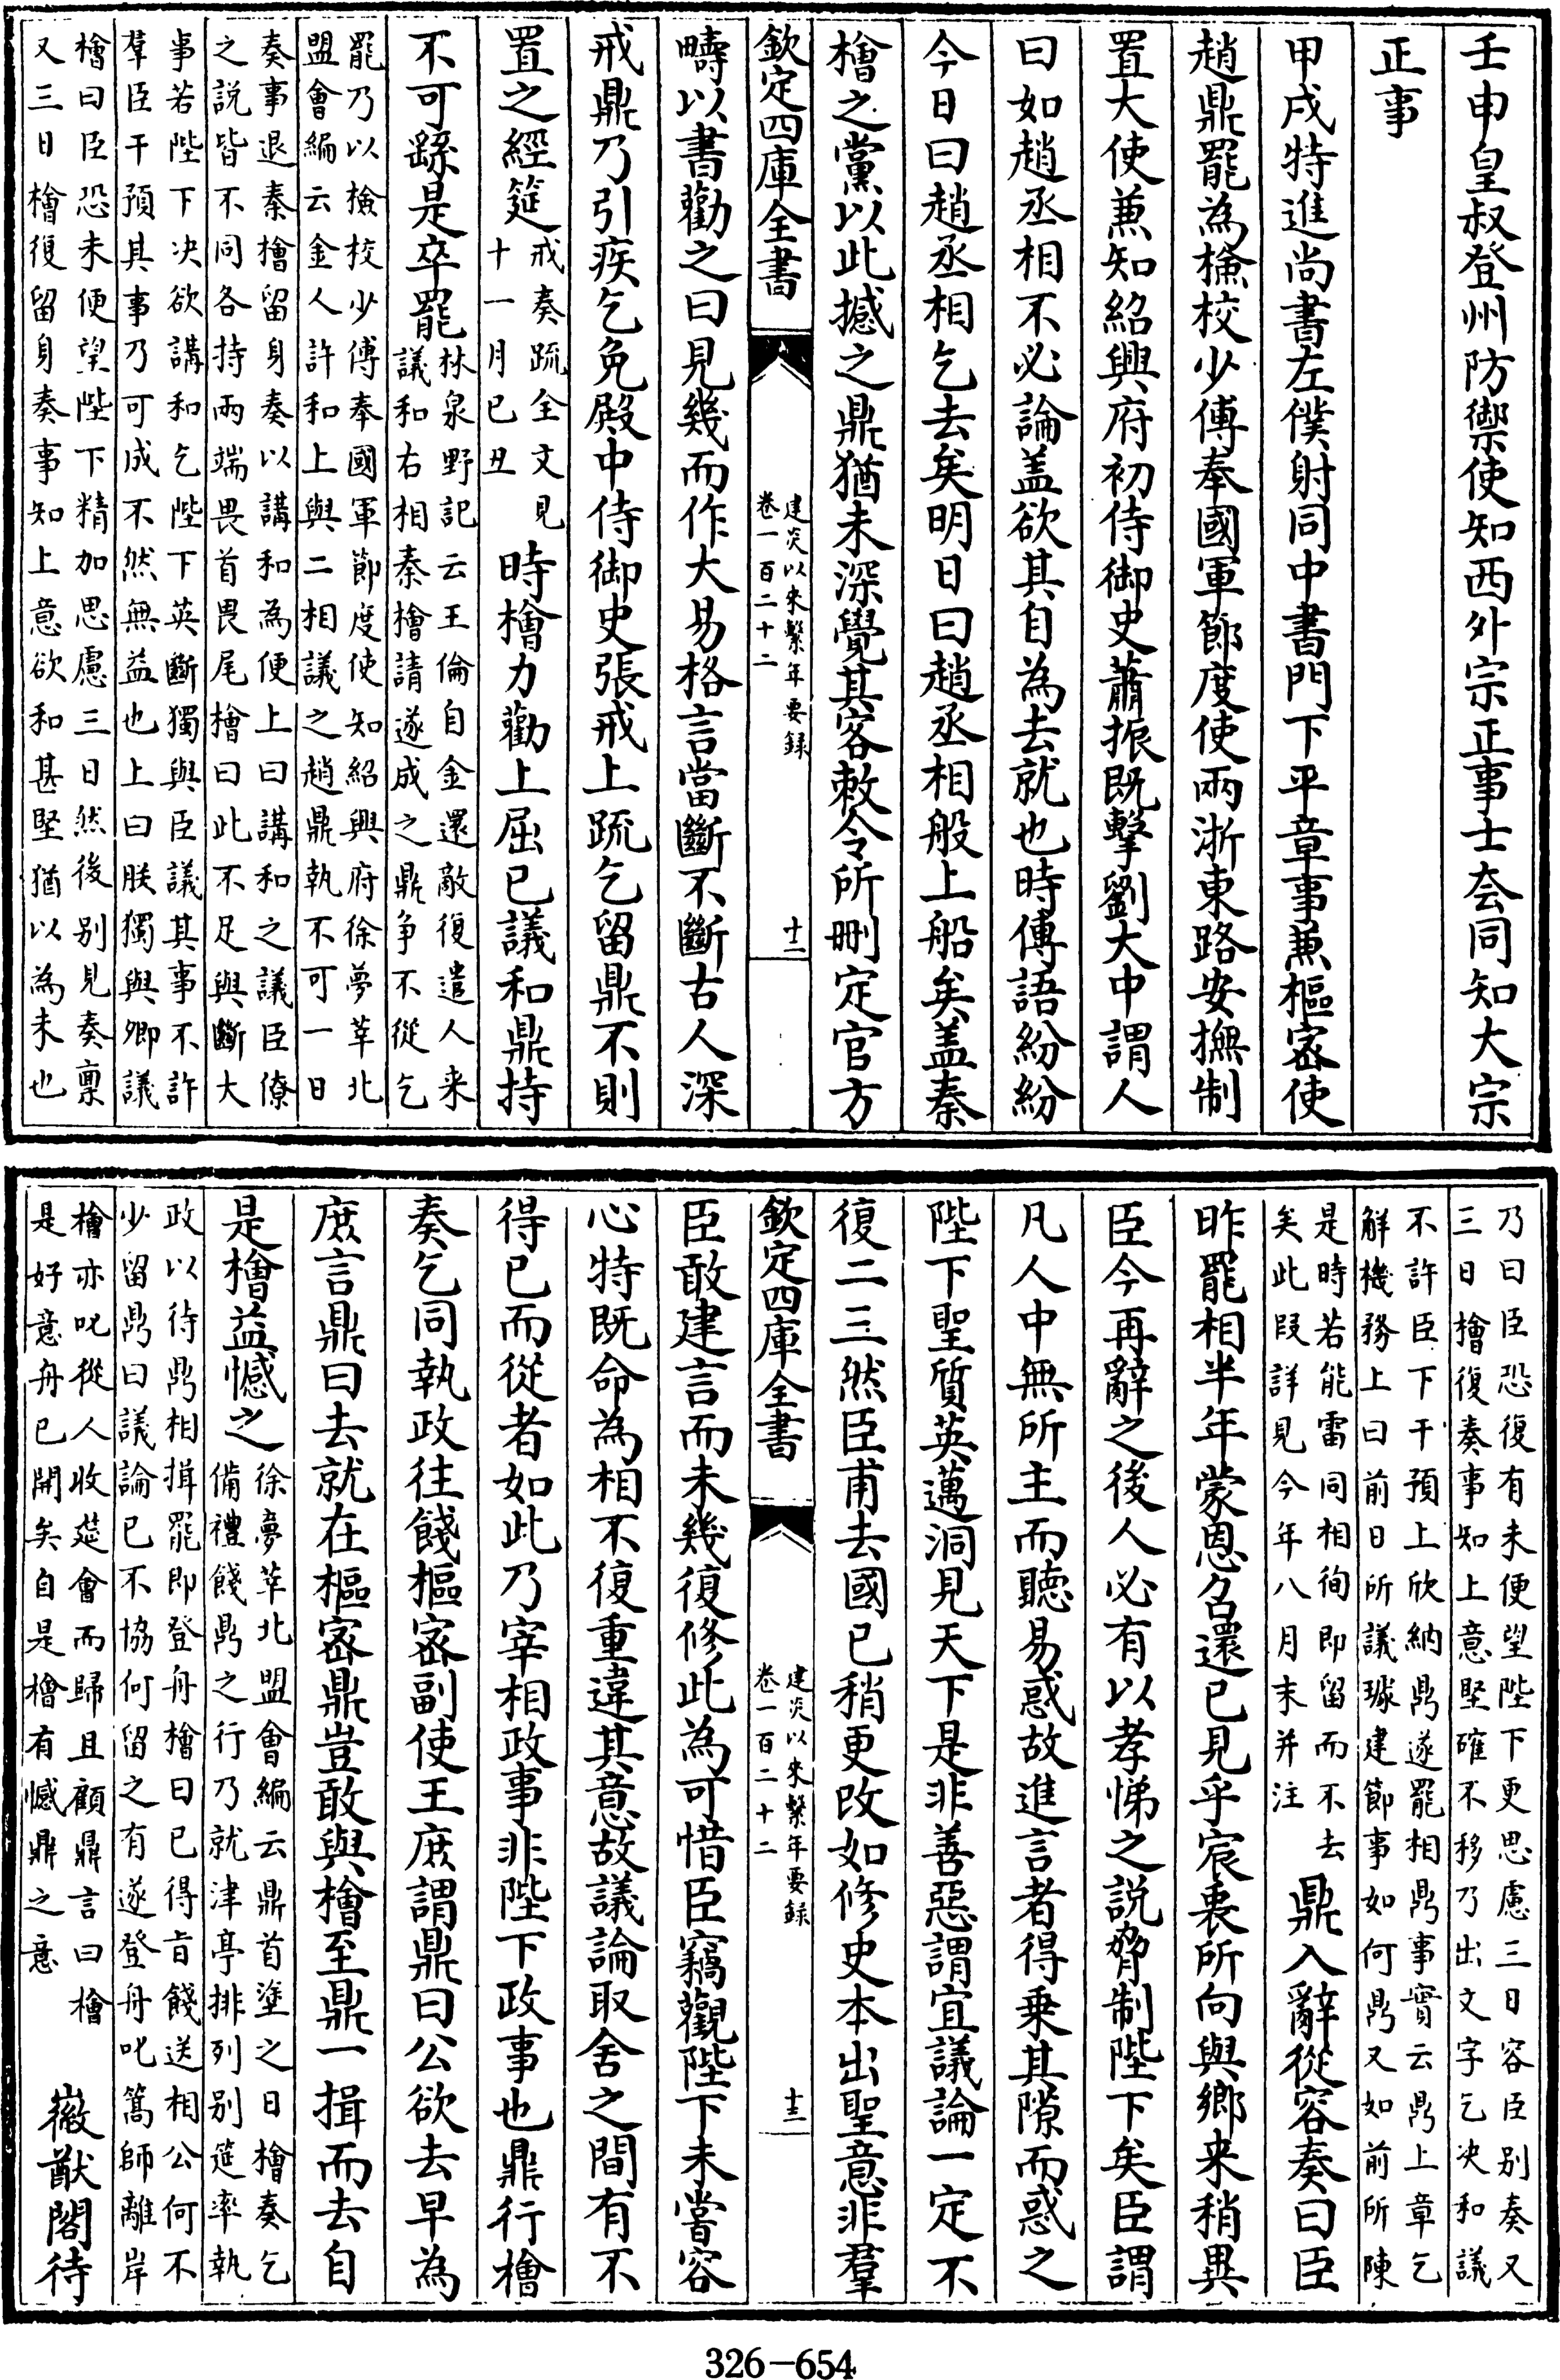 壬申皇叔登州防禦使知西外宗正事士㒶同知大宗
正事
甲戌特進尚書左僕射同中書門下平章事兼樞密使
趙鼎罷為檢校少傅奉國軍節度使兩浙東路安撫制
置大使兼知紹興府初侍御史蕭振既擊劉大中謂人
曰如趙丞相不必論盖欲其自為去就也時傳語紛紛
今日曰趙丞相乞去矣明日曰趙丞相般上船矣盖秦
檜之黨以此撼之鼎猶未深覺其客敕令所刪定官方
欽定四庫全書
建炎以來繫年要録
卷一百二十二
十二
疇以書勸之曰見幾而作大易格言當斷不斷古人深
戒鼎乃引疾乞免殿中侍御史張戒上疏乞留鼎不則
置之經筵
戒奏疏全文見
十一月己丑
時檜力勸上屈己議和鼎持
不可繇是卒罷
林泉野記云王倫自金還敵復遣人来
議和右相秦檜請遂成之鼎争不從乞
罷乃以檢校少傅奉國軍節度使知紹興府徐夢莘北
盟會編云金人許和上與二相議之趙鼎執不可一日
奏事退秦檜留身奏以講和為便上曰講和之議臣僚
之説皆不同各持兩端畏首畏尾檜曰此不足與斷大
事若陛下决欲講和乞陛下英斷獨與臣議其事不許
羣臣干預其事乃可成不然無益也上曰朕獨與卿議
檜曰臣恐未便望陛下精加思慮三日然後别見奏禀
又三日檜復留身奏事知上意欲和甚堅猶以為未也
乃曰臣恐復有未便望陛下更思慮三日容臣别奏又
三日檜復奏事知上意堅確不移乃出文字乞决和議
不許臣下干預上欣納鼎遂罷相鼎事實云鼎上章乞
解機務上曰前日所議璩建節事如何鼎又如前所陳
是時若能雷同相徇即留而不去
矣此叚詳見今年八月末并注
鼎入辭從容奏曰臣
昨罷相半年蒙恩召還已見乎宸衷所向與鄉来稍異
臣今再辭之後人必有以孝悌之説脅制陛下矣臣謂
凡人中無所主而聽易惑故進言者得乗其隙而惑之
陛下聖質英邁洞見天下是非善惡謂宜議論一定不
復二三然臣甫去國已稍更改如修史本出聖意非羣
欽定四庫全書
建炎以來繫年要録
卷一百二十二
十三
臣敢建言而未幾復修此為可惜臣竊觀陛下未嘗容
心特既命為相不復重違其意故議論取舍之間有不
得已而從者如此乃宰相政事非陛下政事也鼎行檜
奏乞同執政往餞樞密副使王庶謂鼎曰公欲去早為
庶言鼎曰去就在樞密鼎豈敢與檜至鼎一揖而去自
是檜益憾之
徐夢莘北盟會編云鼎首塗之日檜奏乞
備禮餞鼎之行乃就津亭排列别筵率執
政以待鼎相揖罷即登舟檜曰已得㫖餞送相公何不
少留鼎曰議論已不協何留之有遂登舟叱篙師離岸
檜亦叱從人收筵會而歸且顧鼎言曰檜
是好意舟已開矣自是檜有憾鼎之意
徽猷閣待
326-654